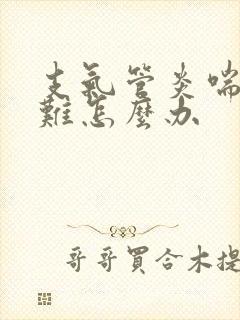 支氣管炎喘
難怎麼办
哥哥買合木提